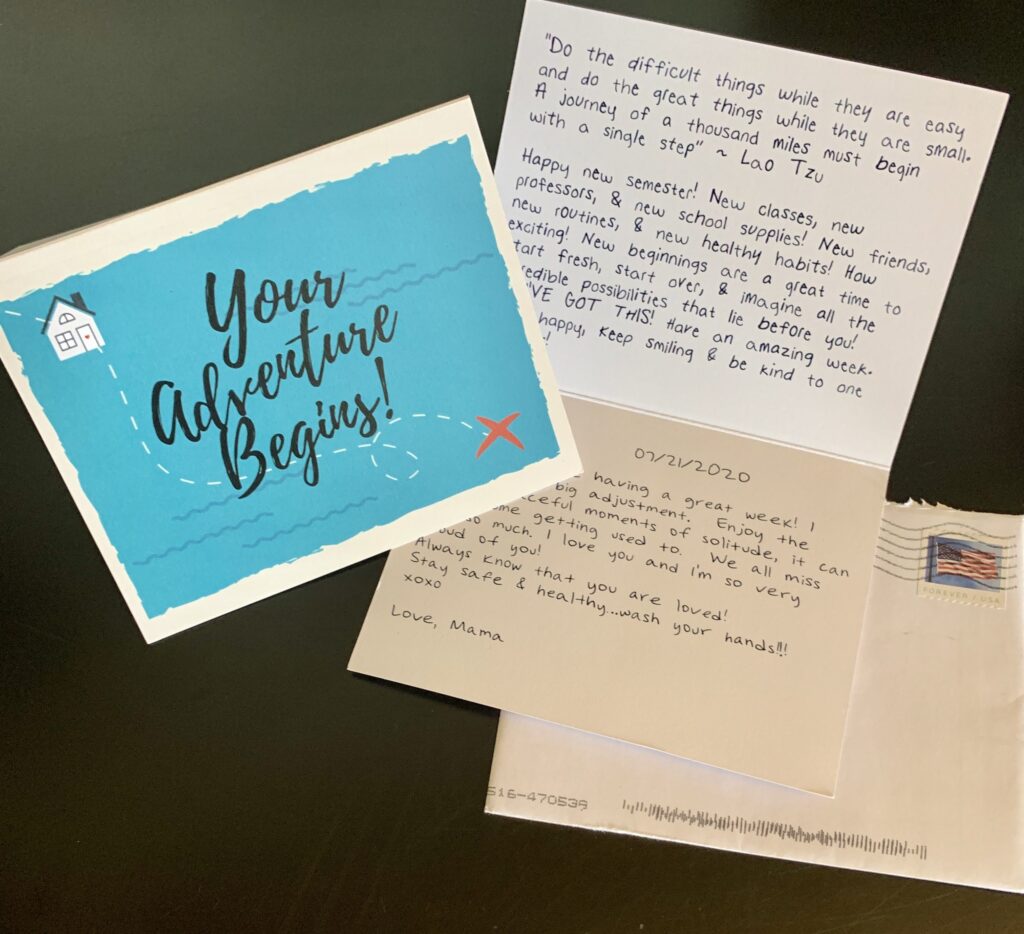 Your
Adventure
Begins!
"Do the difficult things while they are easy
and do the great things while they are small.
A journey of a thousand miles must begin
with a single step" ~ Lao Tzu
Happy new semester! New classes, new
professors, & new school supplies! New friends,
new routines, & new healthy habits! How
exciting! New beginnings are a great time to
tart fresh, start over, & imagine all the
redible possibilities that lie before you!
'VE GOT THIS! Have an amazing week.
happy, keep smiling & be kind to one
!
07/21/2020
having a great week! I
big adjustment. Enjoy the
ceful moments of solitude, it can
me getting used to. We all miss
so much. I love you and I'm so very
oud of you!
Always know that you are loved!
Stay safe & healthy...wash your hands!!!
xoxo
Love, Mama
FOREVER / USA
516-470539